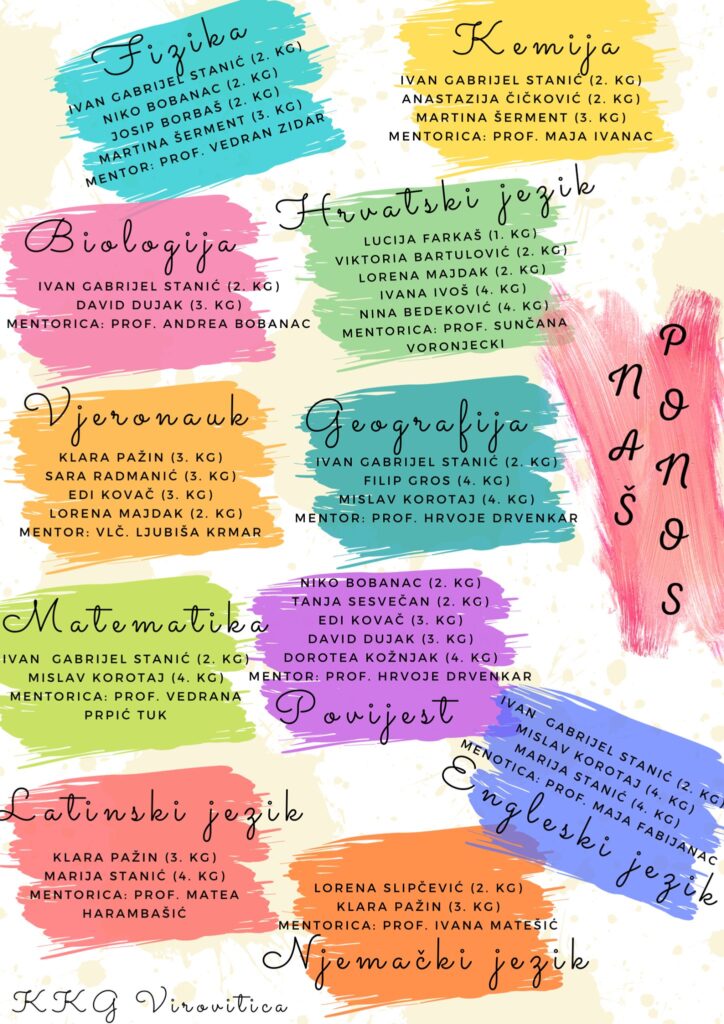 Fizika
IVAN GABRIJEL STANIĆ (2. KG)
NIKO BOBANAC (2. KG)
JOSIP BORBAŠ (2. KG)
MARTINA ŠERMENT (3. KG)
MENTOR: PROF. VEDRAN ZIDAR
Kemija
IVAN GABRIJEL STANIĆ (2. KG)
ANASTAZIJA ČIČKOVIĆ (2. KG)
MARTINA ŠERMENT (3. KG)
MENTORICA: PROF. MAJA IVANAC
Biologija
IVAN GABRIJEL STANIĆ (2. KG)
DAVID DUJAK (3. KG)
MENTORICA: PROF. ANDREA BOBANAC
Hrvatski jezik
LUCIJA FARKAŠ (1. KG)
VIKTORIA BARTULOVIĆ (2. KG)
LORENA MAJDAK (2. KG)
IVANA IVOŠ (4. KG)
NINA BEDEKOVIĆ (4. KG)
MENTORICA: PROF. SUNČANA
VORONJECKI
NAŠ
PONOS
Vjeronauk
KLARA PAŽIN (3. KG)
SARA RADMANIĆ (3. KG)
EDI KOVAČ (3. KG)
LORENA MAJDAK (2. KG)
MENTOR: VLČ. LJUBIŠA KRMAR
Geografija
IVAN GABRIJEL STANIĆ (2. KG)
FILIP GROS (4. KG)
MISLAV KOROTAJ (4. KG)
MENTOR: PROF. HRVOJE DRVENKAR
Matematika
IVAN GABRIJEL STANIĆ (2. KG)
MISLAV KOROTAJ (4. KG)
MENTORICA: PROF. VEDRANA
PRPIĆ TUK
NIKO BOBANAC (2. KG)
TANJA SESVEČAN (2. KG)
EDI KOVAČ (3. KG)
DAVID DUJAK (3. KG)
DOROTEA KOŽNJAK (4. KG)
MENTOR: PROF. HRVOJE DRVENKAR
Povijest
IVAN GABRIJEL STANIĆ (2. KG)
MISLAV KOROTAJ (4. KG)
MARIJA STANIĆ (4. KG)
MENOTICA: PROF. MAJA FABIJANAC
Engleski jezik
Latinski jezik
KLARA PAŽIN (3. KG)
MARIJA STANIĆ (4. KG)
MENTORICA: PROF. MATEA
HARAMBAŠIĆ
LORENA SLIPČEVIĆ (2. KG)
KLARA PAŽIN (3. KG)
MENTORICA: PROF. IVANA MATEŠIĆ
Njemački jezik
KKG Virovitica